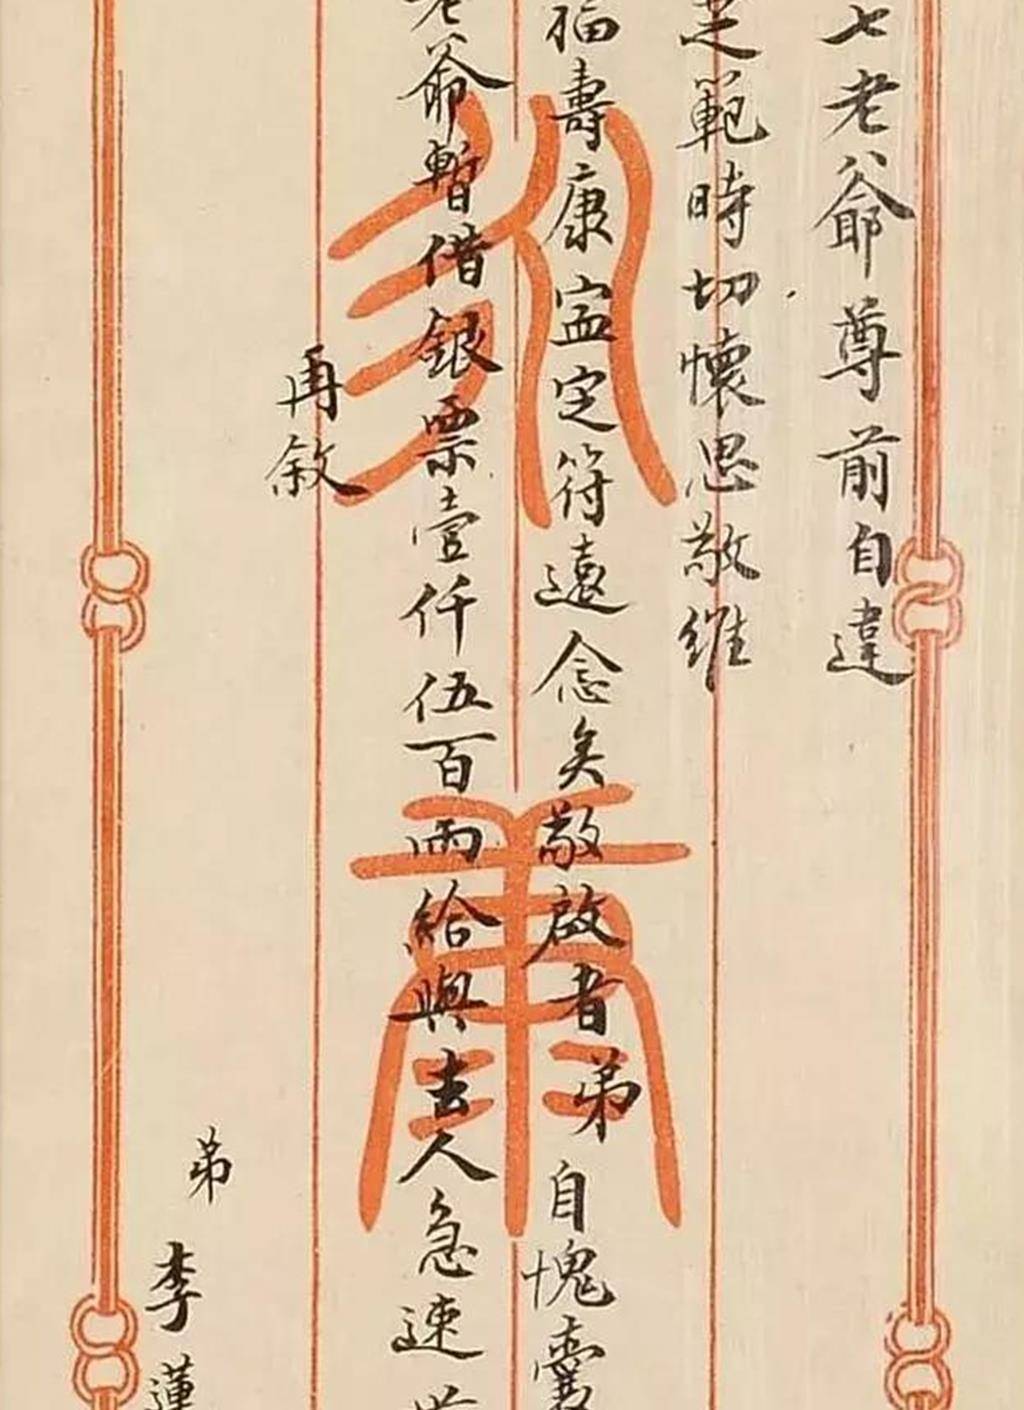 七老爺尊前自違
芝範時切懷思敬維
福壽康寧定符遠念矣敬啟者弟自愧囊
老爺暫借銀票壹仟伍百兩給與去人急速
再敘
弟
李蓮